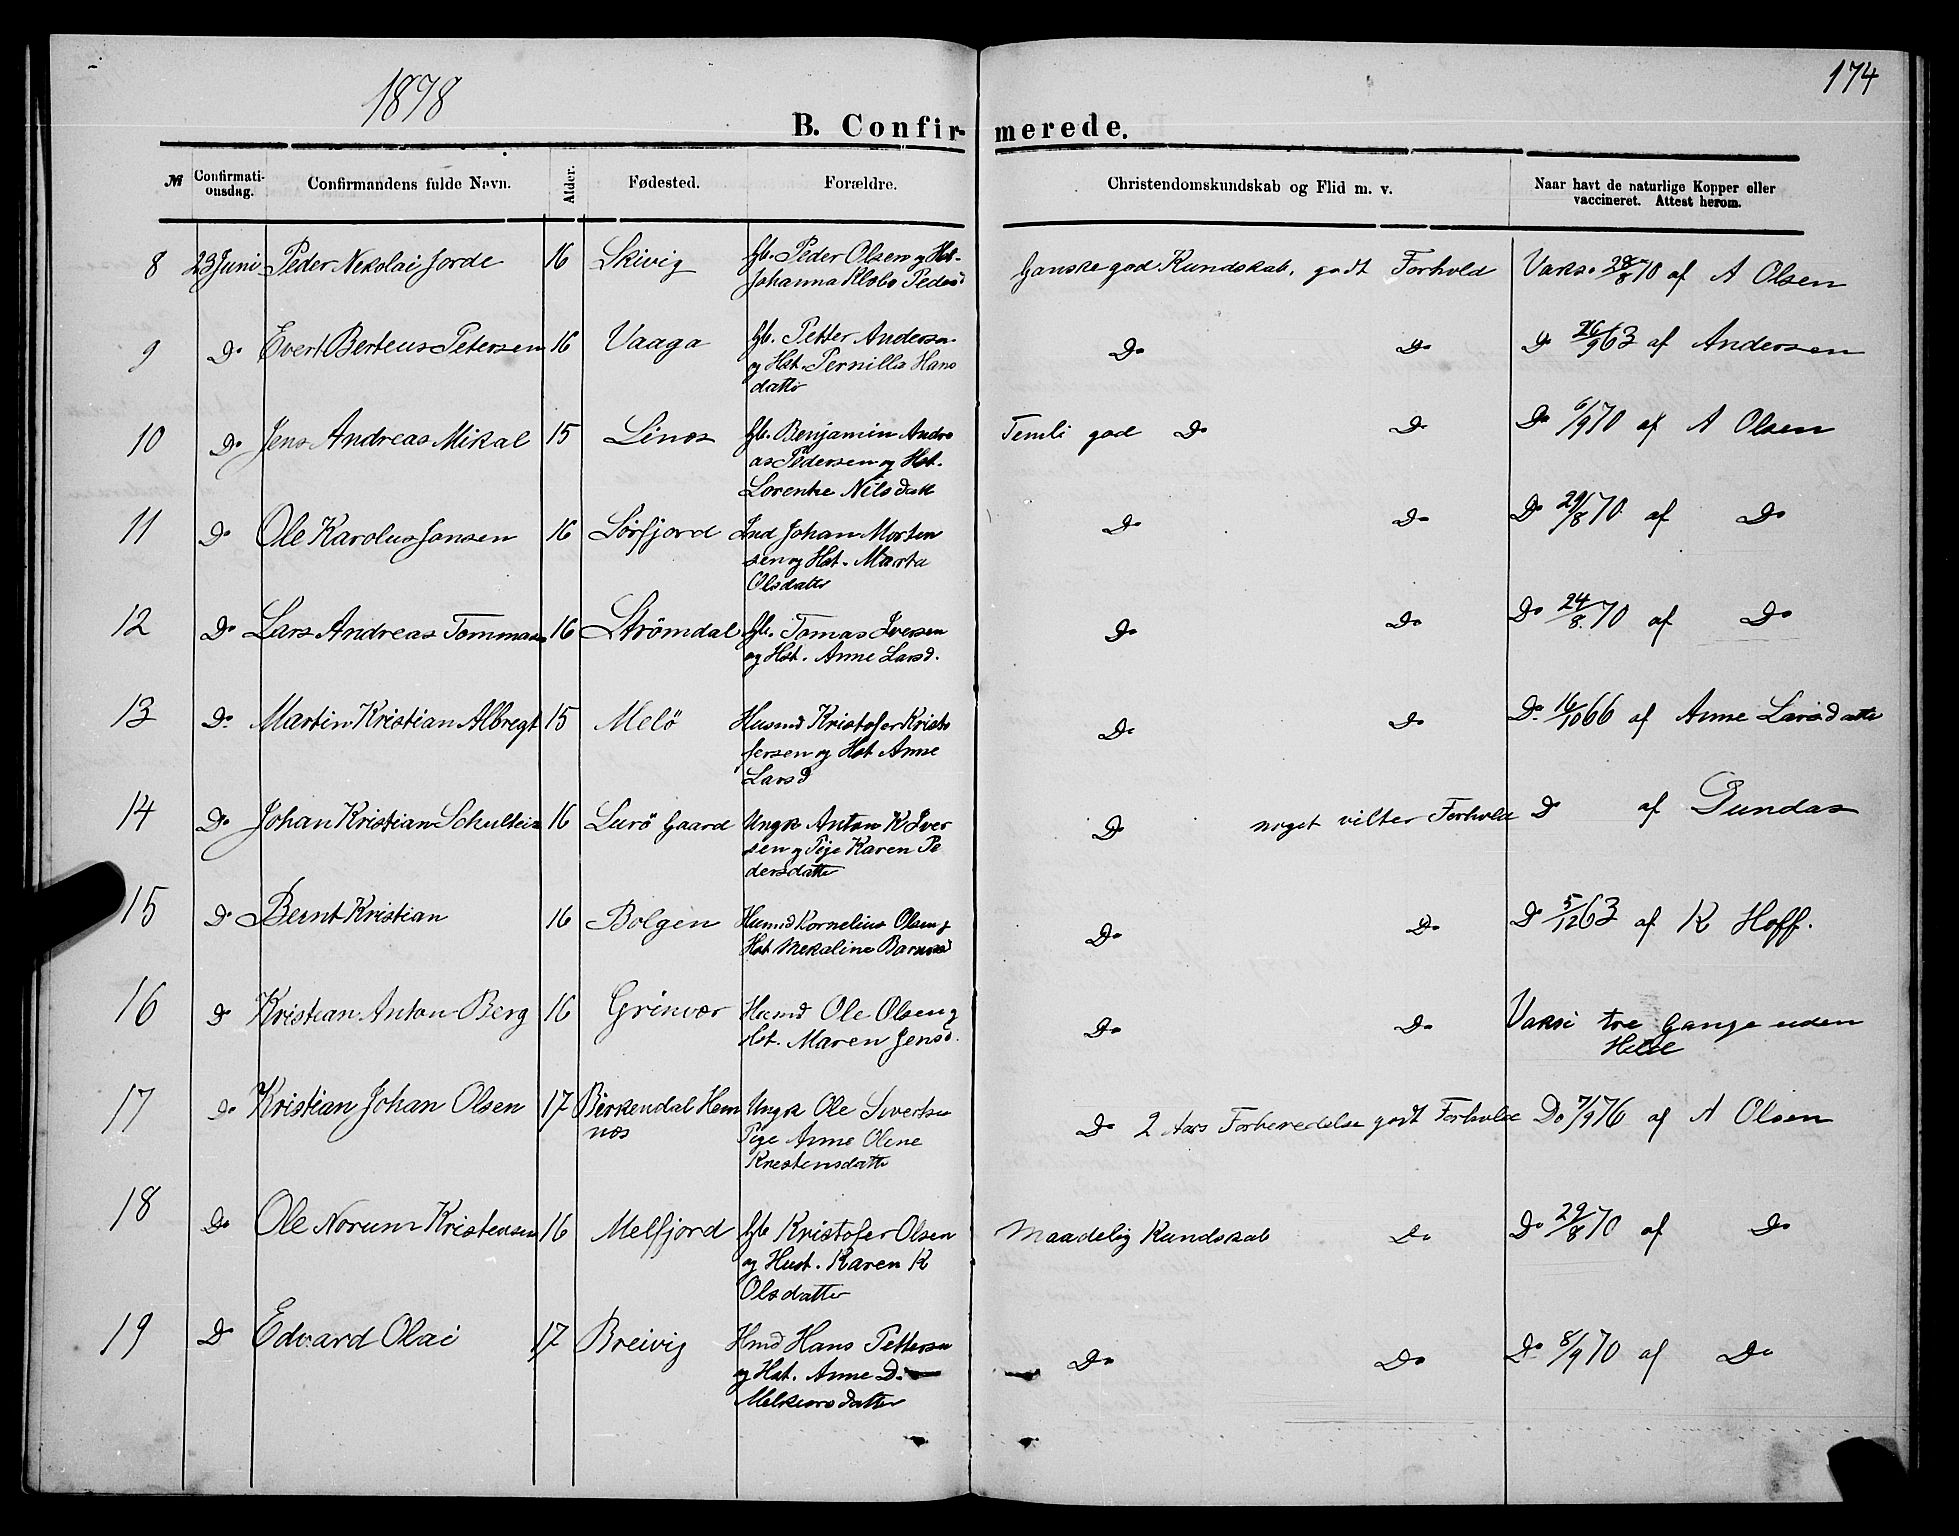 1878
174
B. Confirmerede.
№ Confirmationsdag. Confirmandens fulde Navn. Alder. Fødested. Forældre. Christendomskundskab og Flid m. v. Naar havt de naturlige Kopper eller vaccineret. Attest herom.
8 23 Juni Peder Nekolai Jorde 16 Skivig Gb. Peder Olsen og Hst. Ganske god Kundskab, godt Forhold Vaks. 28/8 70 af A Olsen
Johanna Peders
9 Do Evert Berteus Petersen 16 Vaaga Gb. Petter Andersn Do Do Do 26/9 63 af Andersen
og Hst. Pernille Hans
datter
10 Do Jens Andreas Mikal 15 Gb. Benjamin Andre Temli god Do Do Do 6/9 70 af A Olsen
as Pedersen og Hst.
Lorentse Nilsdatt
11 Do Ole Karolus Jansen 16 Sørfjord Ind Johan Morten Do Do Do 29/8 70 af Do
sen og Hst. Marta
Olsdatter
12 Do Lars Andreas 16 Strömdal Gb. Tomas Iversen Do Do Do 24/8 70 af Do
og Hst. Anne Larsd.
13 Do Martin Kristian Albregt 15 Melö Husmd Kristofer Kristo Do Do Do 16/10 66 af Anne Larsdatte
fersen og Hst Anne
Larsd
14 Do Johan Kristian 16 Lurö Gaard Ungk Anton K Iver Do noget vilter Forhold Do af Dundas
sen og Pige Karen Pe
dersdatte
15 Do Bernt Kristian 16 Bolgen Husmd Kornelius Olsen og Do Do Do 5/12 63 af K Hoff.
Hst. Mekaline
16 Do Kristian Anton Berg 16 Grönvær Husmd Ole Olsen og Do Do Vaksi tre Gange uden
Hst. Maren Jensd.
17 Do Kristian Johan Olsen 17 Birkendal Hem Ungk Ole Sivertsn Do 2 Aars Forberedelse godt Forhold Do 7/9 76 af A Olsen
næs Pige Anne Olene
Krestensdatte
18 Do Ole Norum Kristensen 16 Melfjord Gb Kristofer Olsen Maadelig Kundskab Do Do 29/8 70 af Do
og Hust. Karen K
Olsdatter
19 Do Edvard Olai 17 Breivig Hmd Hans Pettersn Do Do Do 8/9 70 af Do
og Hst. Anne D.
Melkiorsdatter